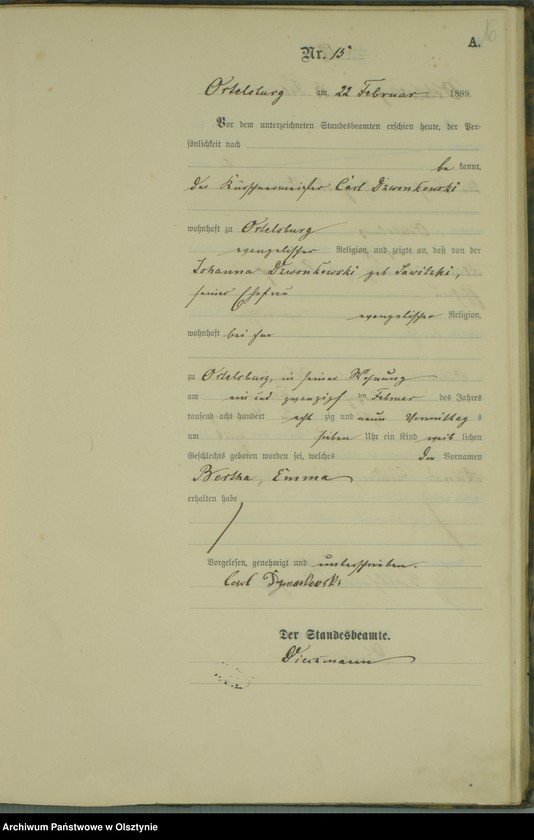 16
A.
Nr. 15
Ortelsburg am 22 Februar 1889.
Vor dem unterzeichneten Standesbeamten erschien heute, der Per-
sönlichkeit nach
be kannt,
der Kürschnermeister Carl Dzwonkowski
wohnhaft zu Ortelsburg
evangelischer Religion, und zeigte an, daß von der
Johanna Dzwonkowski geb Sawitzki,
seiner Ehefrau
evangelischer Religion,
wohnhaft bei ihm
zu Ortelsburg, in seiner Wohnung
am ein und zwanzigst en Februar des Jahres
tausend acht hundert acht zig und neun Vormittag s
um sieben Uhr ein Kind weib lichen
Geschlechts geboren worden sei, welches die Vornamen
Bertha, Emma
erhalten habe
Vorgelesen, genehmigt und unterschrieben.
Carl
Der Standesbeamte.
Archiwum Państwowe w Olsztynie